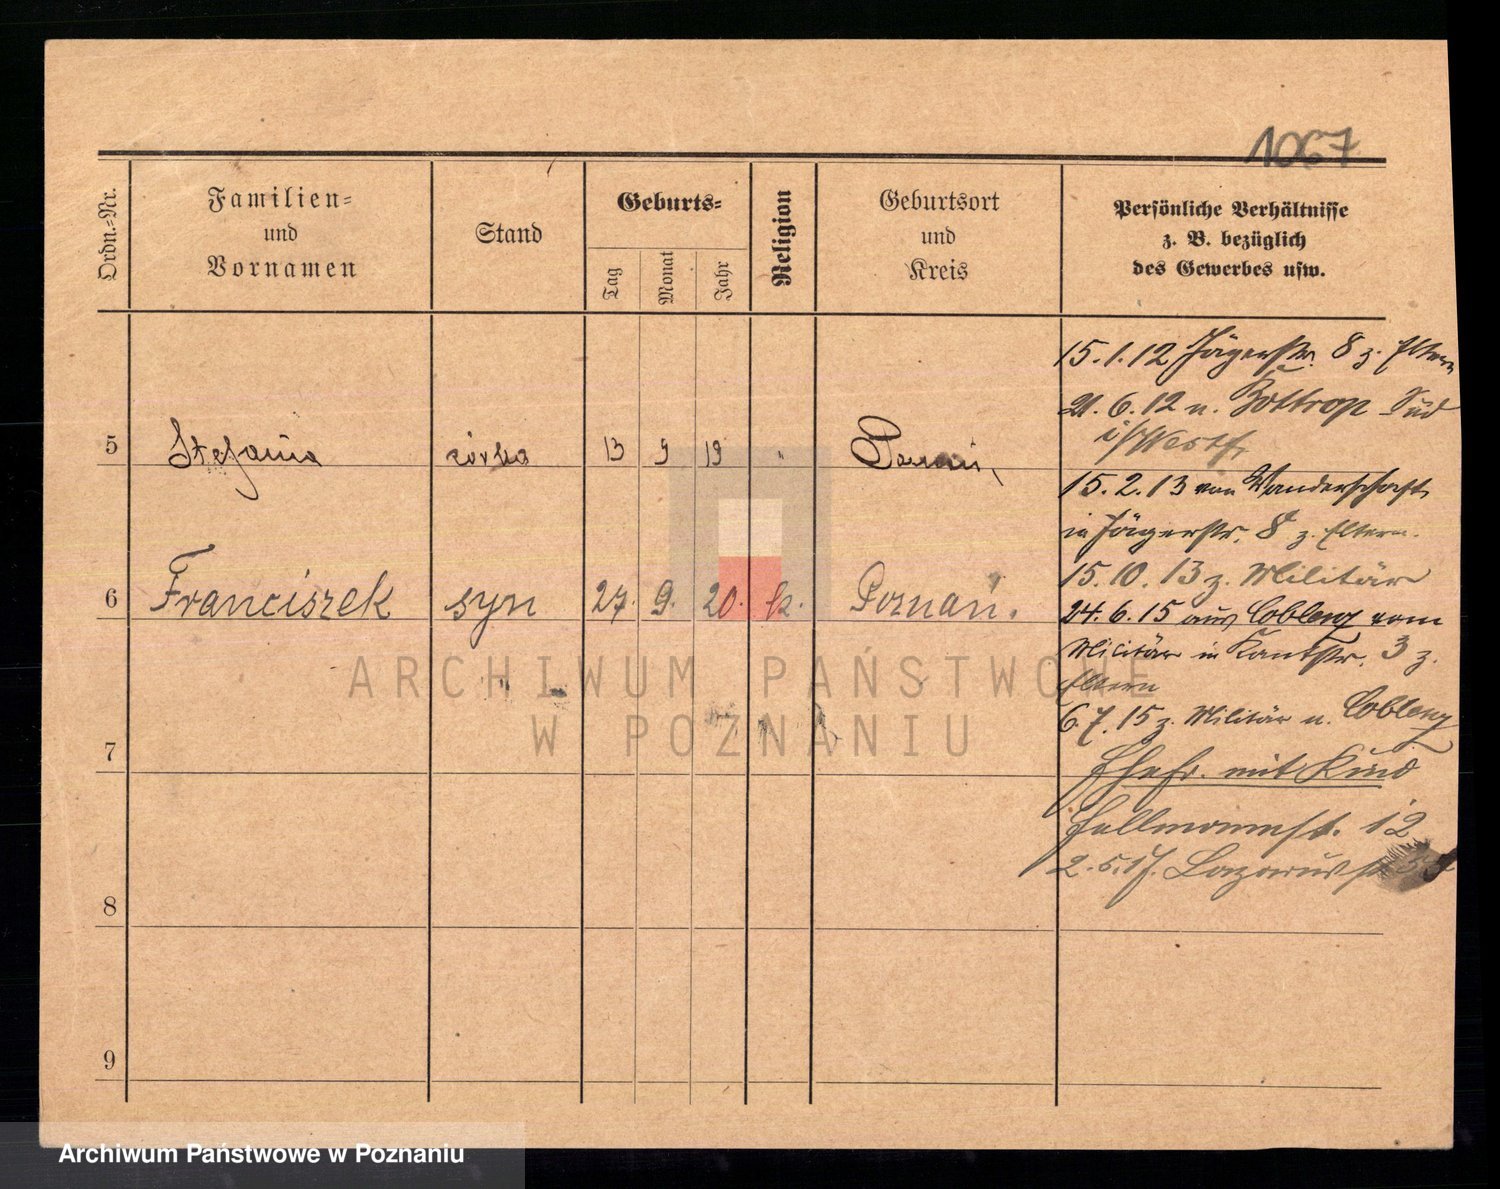 1067
Ordn.-Nr.
Familien-
und
Vornamen
Stand
Geburts-
Tag
Monat
Jahr
Religion
Geburtsort
und
Kreis
Persönliche Verhältnisse
z. B. bezüglich
des Gewerbes usw.
5 Stefania córka 13 9 19 "
6 Franciszek syn 27. 9. 20. k. Poznań.
7
8
9
15.1.12 Jägerstr. 8 z. Eltern
21.6.12 n. Bottrop Süd
i/Westf.
15.2.13 von Wanderschaft
in Jägerstr. 8 z. Eltern.
15.10.13 z. Militär
24.6.15 aus Coblenz vom
Militär in Kantstr. 3 z.
Eltern
6.7.15 z. Militär n. Coblenz
Ehefr. mit Kind
12
2.5.17. Lazarusstr.
ARCHIWUM PAŃSTWOWE
W POZNANIU
Archiwum Państwowe w Poznaniu